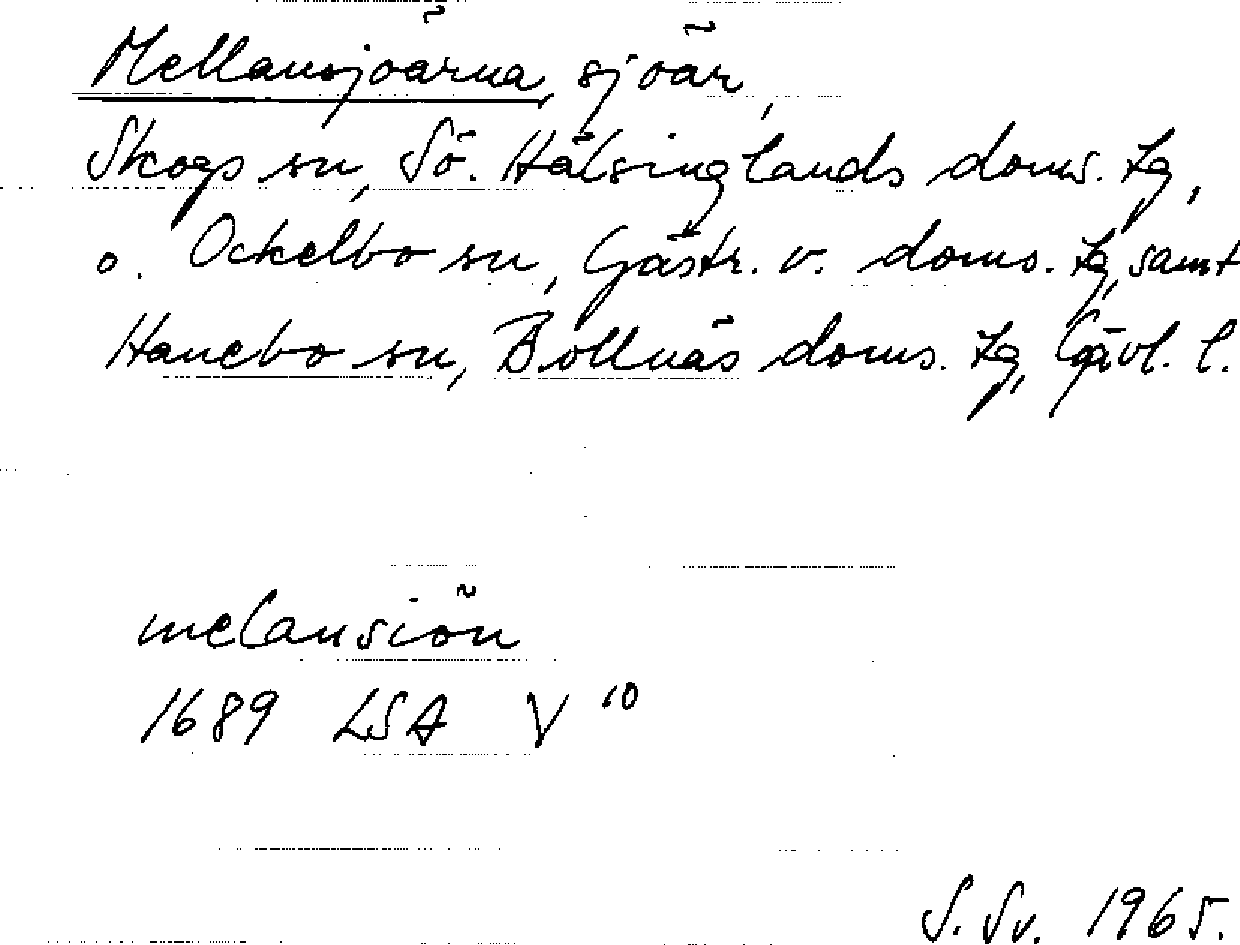 Mellansjöarna, sjöar,
Skogs sn, Sö. Hälsinglands doms. tg,
o. Ockelbo sn, Gästr. v. doms. tg, samt
Hanebo sn, Bollnäs doms. tg, Gävl. l.
melansiön
1689 LSA V 10
S. Sv. 1965.